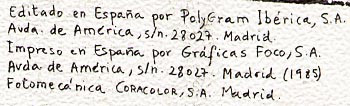 Editado en España por PolyGram Ibérica, S.A.
Avda. de América, s/n. 28027. Madrid.
Impreso en España por Gráficas Foco, S.A.
Avda de América, s/n. 28027. Madrid (1985)
Fotomecánica CORACOLOR, S.A. Madrid.